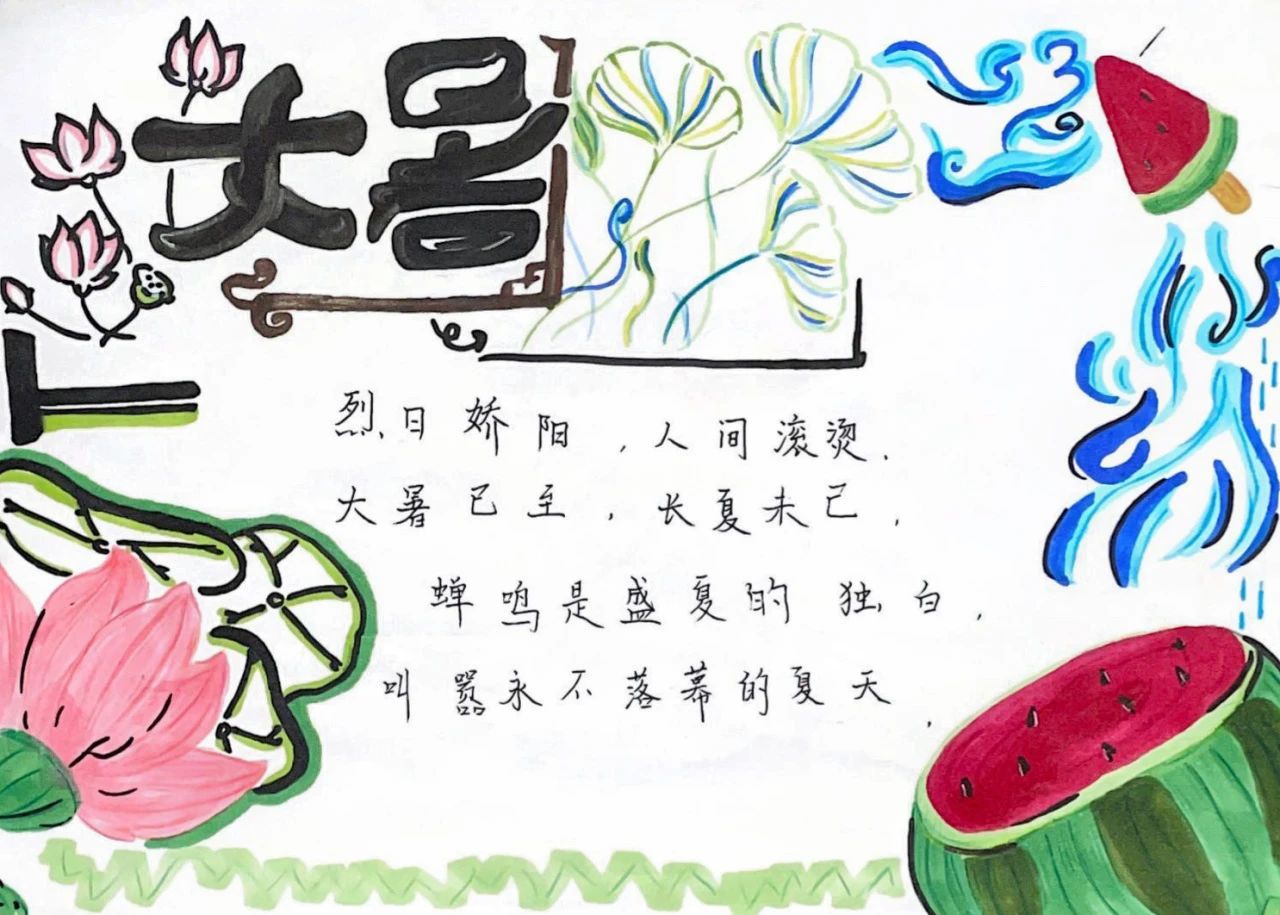 大暑
烈日娇阳，人间滚烫.
大暑已至，长夏未已，
蝉鸣是盛夏的独白，
叫嚣永不落幕的夏天，